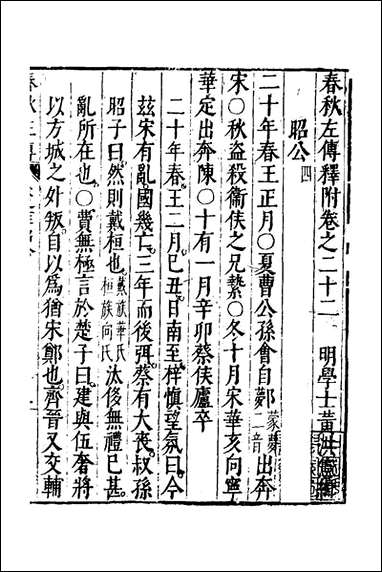 春秋左傳釋附卷之二十二　明學士黃洪憲
昭公四
二十年春王正月○夏曹公孫會自鄸蒙夢二音出奔
宋○秋盜殺衛侯之兄縶○冬十月宋華亥向寧
華定出奔陳○十有一月辛卯蔡侯廬卒
二十年春王二月己丑日南至梓慎望氛曰今
茲宋有亂國幾亡三年而後弭蔡有大喪叔孫
昭子曰然則戴桓也戴族華氏桓族向氏汰侈無禮已甚
亂所在也○費無極言於楚子曰建與伍奢將
以方城之外叛自以爲猶宋鄭也齊晉又交輔